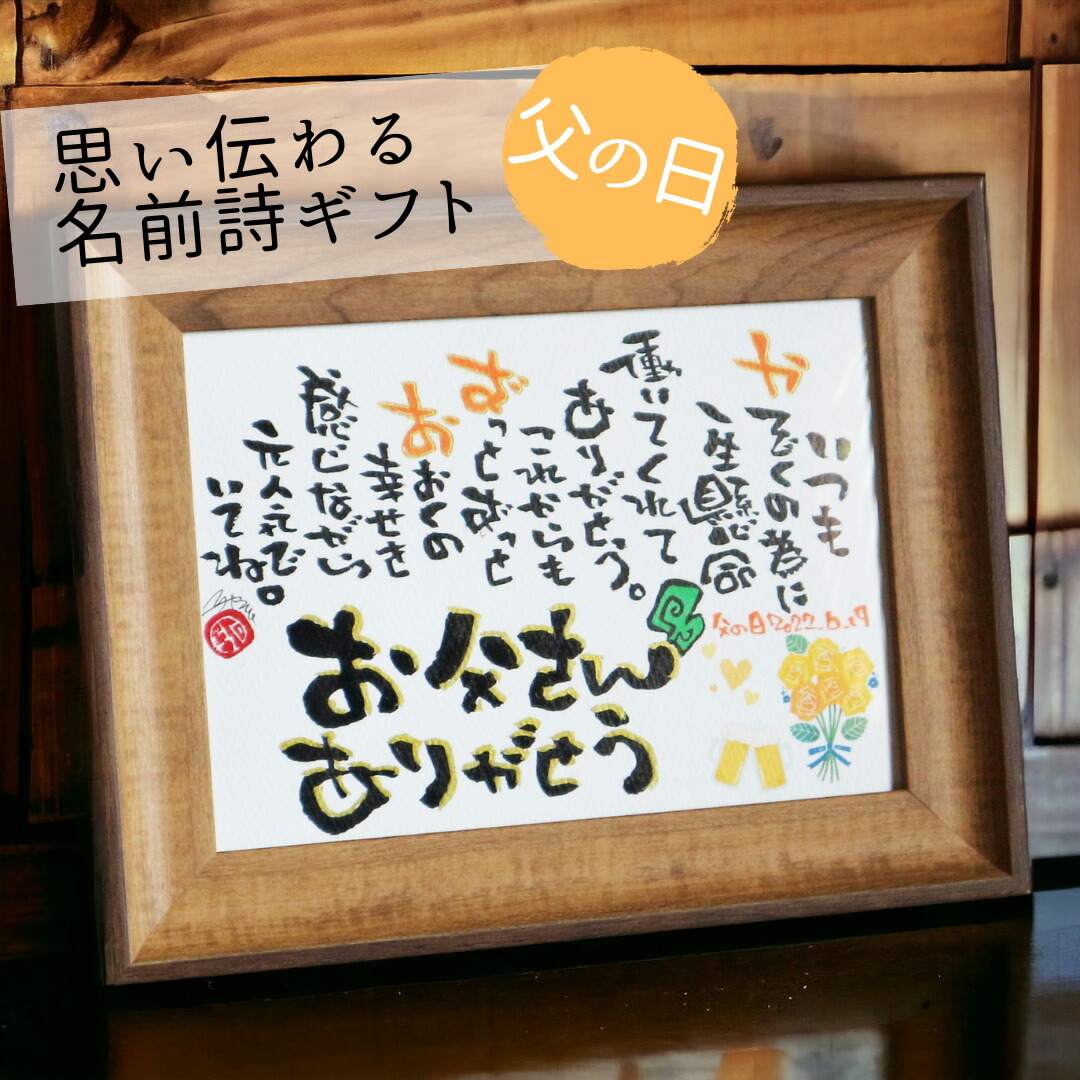 思い伝わる
名前詩ギフト
父の日
いつも
かぞくの為に
一生懸命
働いてくれて
ありがとう。
これからも
ずっとずっと
おおくの
幸せを
感じながら
元気で
いてね。
父の日2022_6_19
お父さん
ありがとう